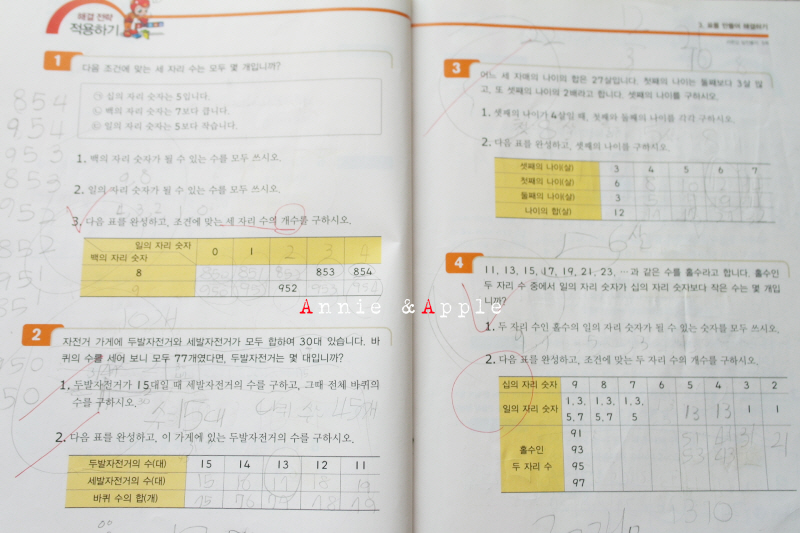 해결 전략
적용하기
1
다음 조건에 맞는 세 자리 수는 모두 몇 개입니까?
㉮ 십의 자리 숫자는 5입니다.
㉯ 백의 자리 숫자는 7보다 큽니다.
㉰ 일의 자리 숫자는 5보다 작습니다.
1. 백의 자리 숫자가 될 수 있는 수를 모두 쓰시오.
2. 일의 자리 숫자가 될 수 있는 수를 모두 쓰시오.
3. 다음 표를 완성하고, 조건에 맞는 세 자리 수의 개수를 구하시오.
일의 자리 숫자
백의 자리 숫자
0 1 2 3 4
8 853 854
952
854
954
953
853
952
852
951
2
자전거 가게에 두발자전거와 세발자전거가 모두 합하여 30대 있습니다. 바
퀴의 수를 세어 보니 모두 77개였다면, 두발자전거는 몇 대입니까?
1. 두발자전거가 15대일 때 세발자전거의 수를 구하고, 그때 전체 바퀴의
수를 구하시오.
2. 다음 표를 완성하고, 이 가게에 있는 두발자전거의 수를 구하시오.
두발자전거의 수(대) 15 14 13 12 11
세발자전거의 수(대) 15 16 17 18 19
바퀴 수의 합(개) 75 76
3. 표를 만들어 해결하기
3
어느 세 자매의 나이의 합은 27살입니다. 첫째의 나이는 둘째보다 3살 많
고, 또 셋째의 나이의 2배라고 합니다. 셋째의 나이를 구하시오.
1. 셋째의 나이가 4살일 때, 첫째와 둘째의 나이를 각각 구하시오.
2. 다음 표를 완성하고, 셋째의 나이를 구하시오.
셋째의 나이(살) 3 4 5 6 7
첫째의 나이(살) 6
둘째의 나이(살) 3
나이의 합(살) 12
4
11, 13, 15, 17, 19, 21, 23, …과 같은 수를 홀수라고 합니다. 홀수인
두 자리 수 중에서 일의 자리 숫자가 십의 자리 숫자보다 작은 수는 몇 개입
니까?
1. 두 자리 수인 홀수의 일의 자리 숫자가 될 수 있는 숫자를 모두 쓰시오.
2. 다음 표를 완성하고, 조건에 맞는 두 자리 수의 개수를 구하시오.
십의 자리 숫자 9 8 7 6 5 4 3 2
일의 자리 숫자 1, 3, 5, 7 1, 3, 5, 7 1, 3, 5 13 13 1 1
홀수인
두 자리 수
91 51 41 31 21
93 53 43
95
97
Annie & Apple